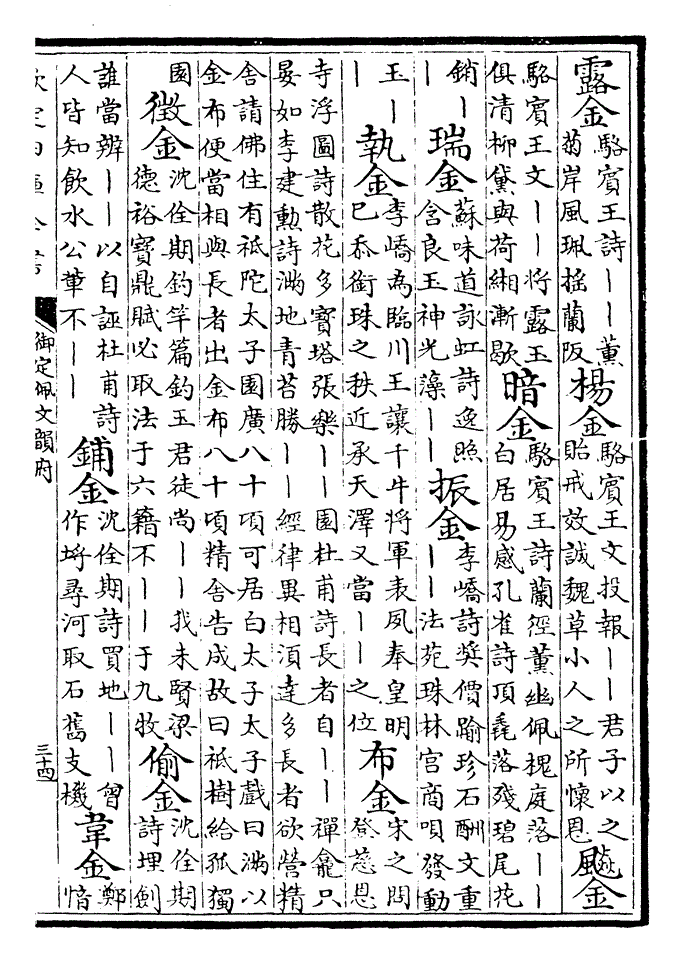 露金駱賓王詩丨丨薰菊岸風珮搖蘭阪楊金駱賓王文投報丨丨君子以之貽戒效誠魏草小人之所懷恩飈金
駱賓王文丨丨將露玉俱清柳黛與荷緗漸歇暗金駱賓王詩蘭徑薰幽佩槐庭落丨丨白居易感孔雀詩頂毳落殘碧尾花
銷丨丨瑞金蘇味道詠虹詩逸照含良玉神光藻丨丨振金李嶠詩奬價踰珍石酬文重丨丨法苑珠林宮商唄發動
玉丨丨執金李嶠為臨川王讓千牛將軍表夙奉皇明已忝銜珠之秩近承天澤又當丨丨之位布金宋之問登慈恩
寺浮圖詩散花多寶塔張樂丨丨園杜甫詩長者自丨丨禪龕只晏如李建勳詩滿地青苔勝丨丨經律異相須達多長者欲營精
舍請佛住有祇陀太子園廣八十項可居白太子太子戲曰滿以金布便當相與長者出金布八十頃精舍告成故曰祇樹給孤獨
園徴金沈佺期釣竿篇釣玉君徒尚丨丨我未賢梁德裕寶鼎賦必取法于六籍不丨丨于九牧偷金沈佺期詩埋劍
誰當辨丨丨以自誣杜甫詩人皆知飲水公輩不丨丨鋪金沈佺期詩買地丨丨曾作埒尋河取石舊支機韋金鄭愔
欽定四庫全書
御定佩文韻府
三十四